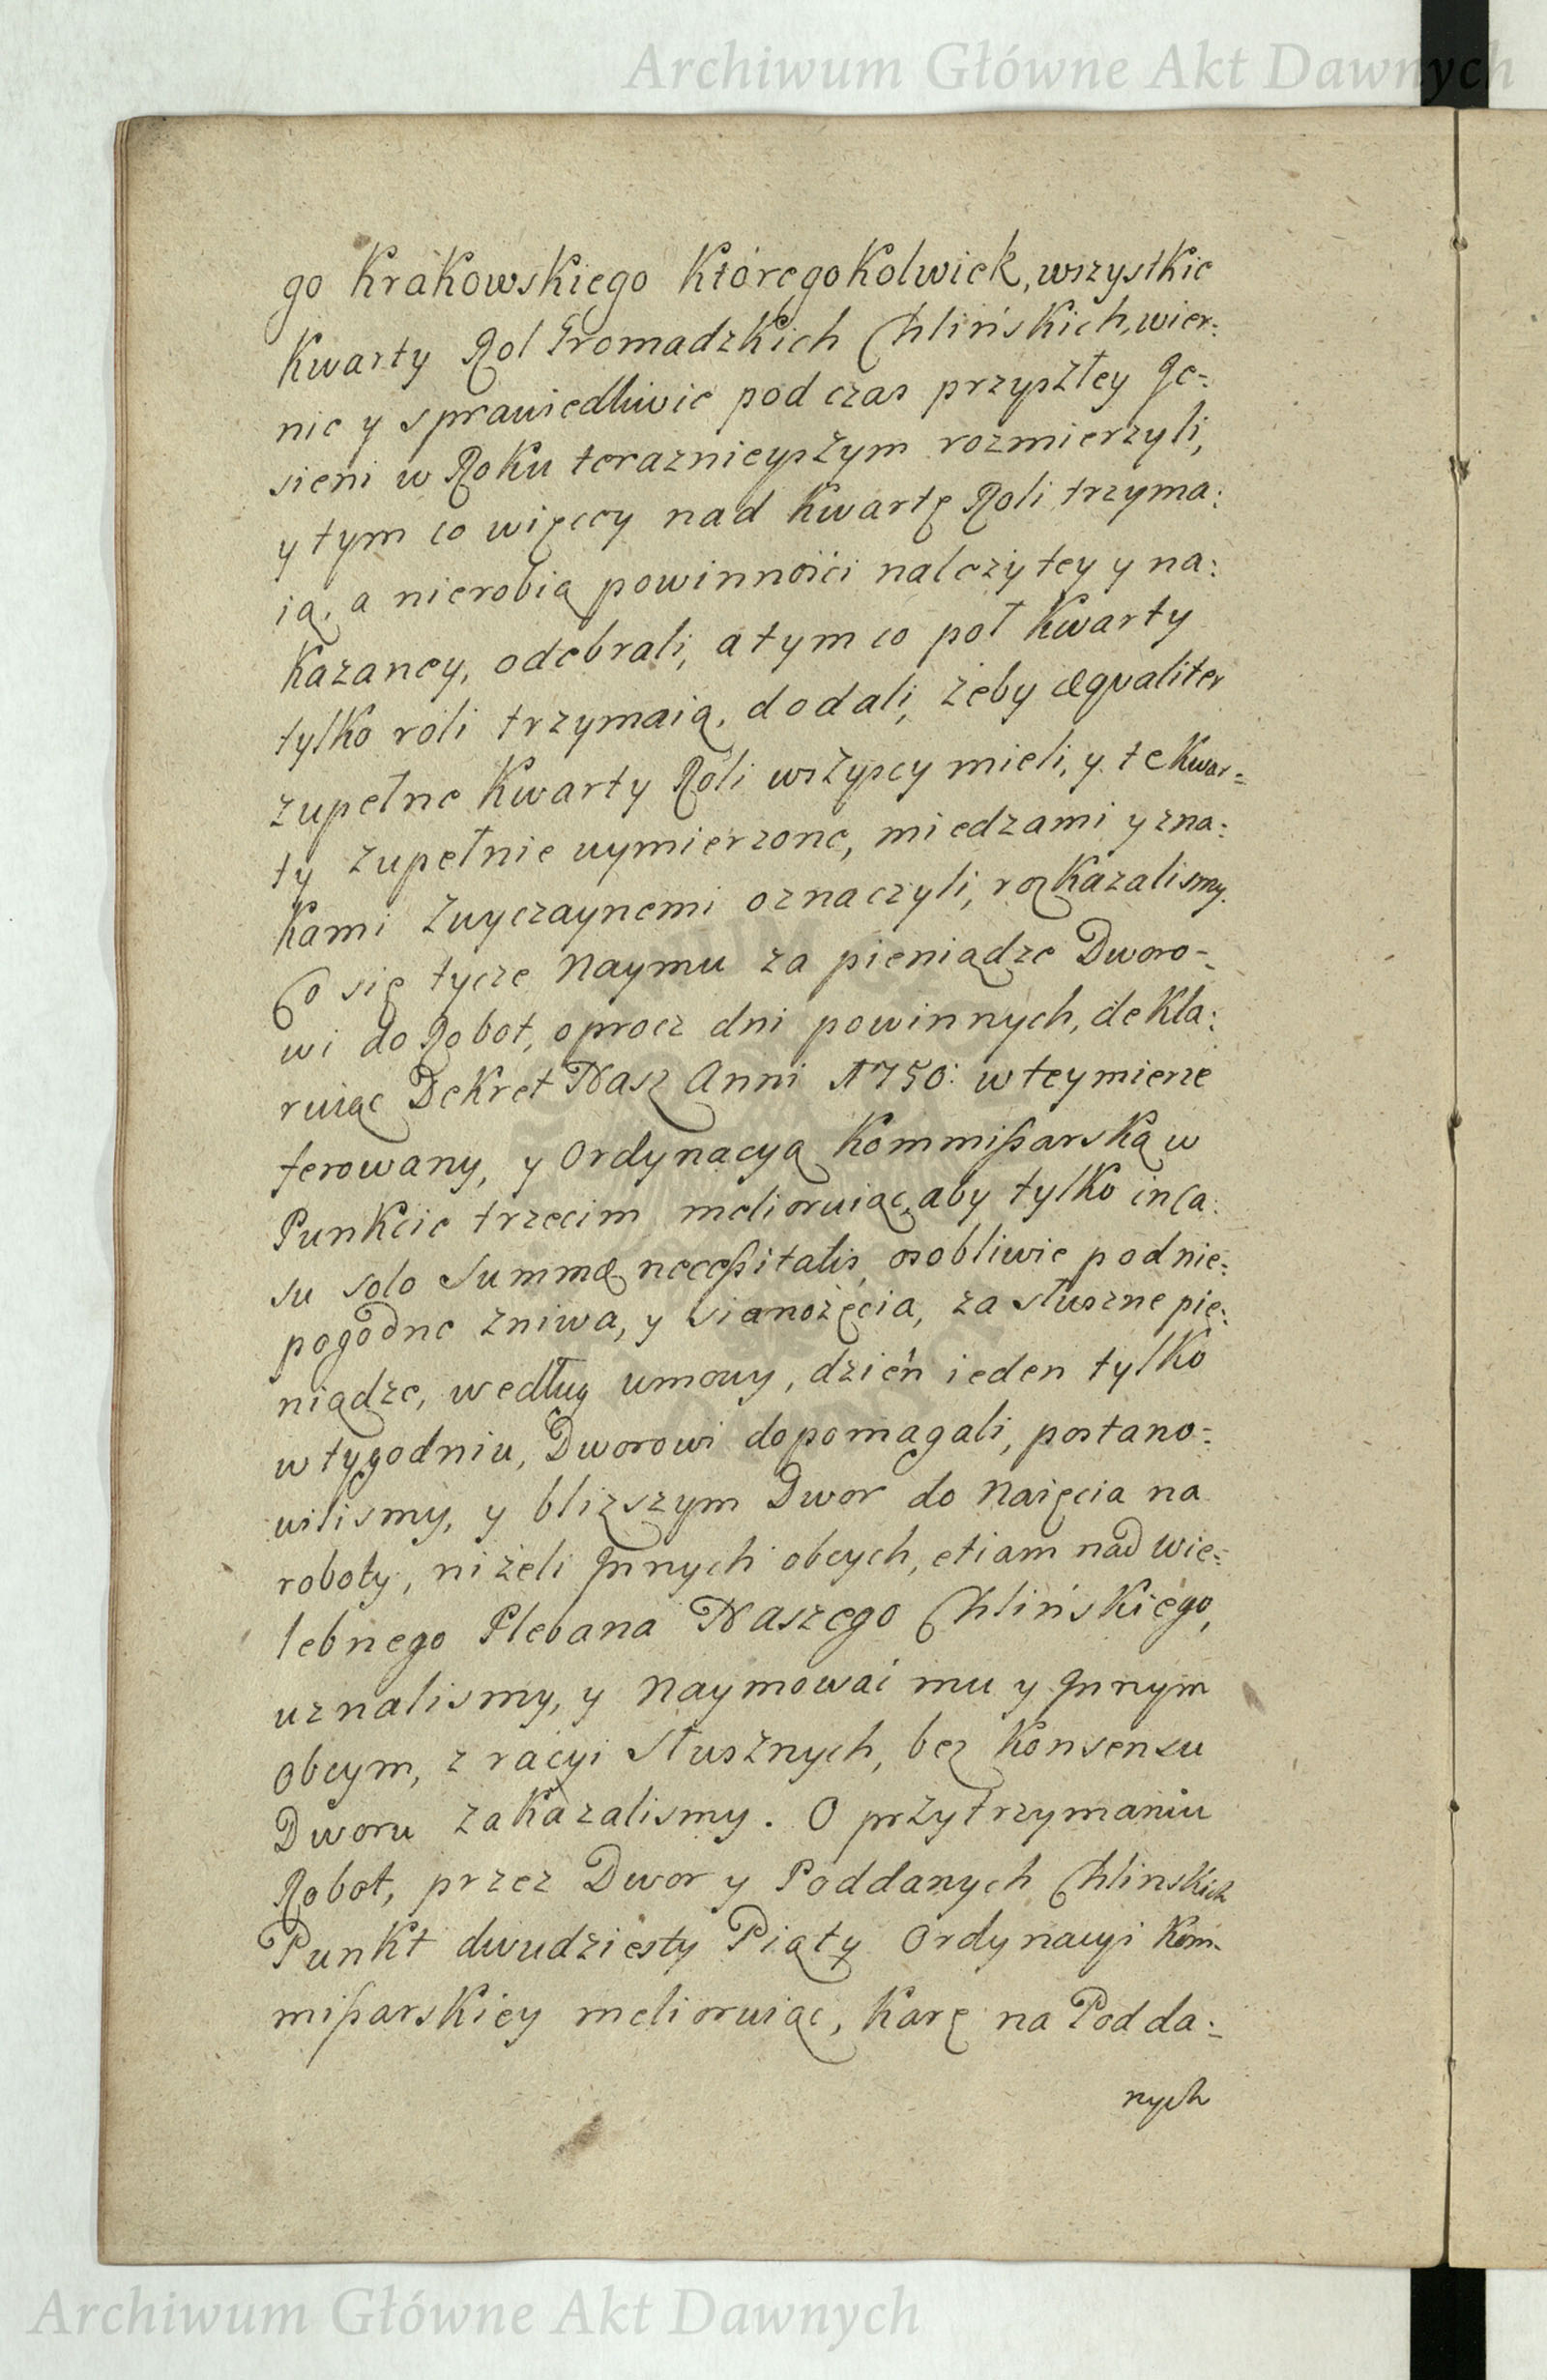 Archiwum Główne Akt Dawnych
go Krakowskiego Ktoregokolwiek, wszystkie
Kwarty Rol Gromadzkich Chlińskich, wier:
nie y sprawiedliwie pod czas przyszłey Je=
sieni w Roku teraznieyszym rozmierzyli,
y tym co więcey nad Kwartę Roli trzyma:
ią, a nierobią powinności należytey y na:
Kazaney, odebrali, a tym co poł Kwarty
tylko roli trzymaią, dodali, żeby æqualiter
zupełne Kwarty Roli wszyscy mieli, y te Kwar=
ty zupełnie wymierzone, miedzami y zna:
Kami zwyczaynemi oznaczyli, rozkazalismy.
Co się tycze Naymu za pieniądze Dworo=
wi do Robot, oprocz dni powinnych, dekla:
ruiąc Dekret Nasz Anni 1750: w tey mierze
ferowany, y Ordynacyą Kommissarską w
Punkcie trzecim melioruiąc, aby tylko in Ca:
su solo Summæ necessitatis, osobliwie pod nie:
pogodne zniwa, y sianożęcia, za słuszne pie:
niądze, według umowy, dzień ieden tylko
w tygodniu, Dworowi dopomagali, postano=
wilismy, y blizszym Dwor do Naięcia na
roboty, niżeli Jnnych obcych, etiam nad Wie=
lebnego Plebana Naszego Chlińskiego,
uznalismy, y Naymować mu y Jnnym
Obcym, z racyi słusznych, bez Konsensu
Dworu zakazalismy. O przytrzymaniu
Robot, przez Dwor y Poddanych Chlinskich
Punkt dwudziesty Piąty Ordynacyi Kom=
missarskiey melioruiąc, Karę na Podda=
nych
Archiwum Główne Akt Dawnych